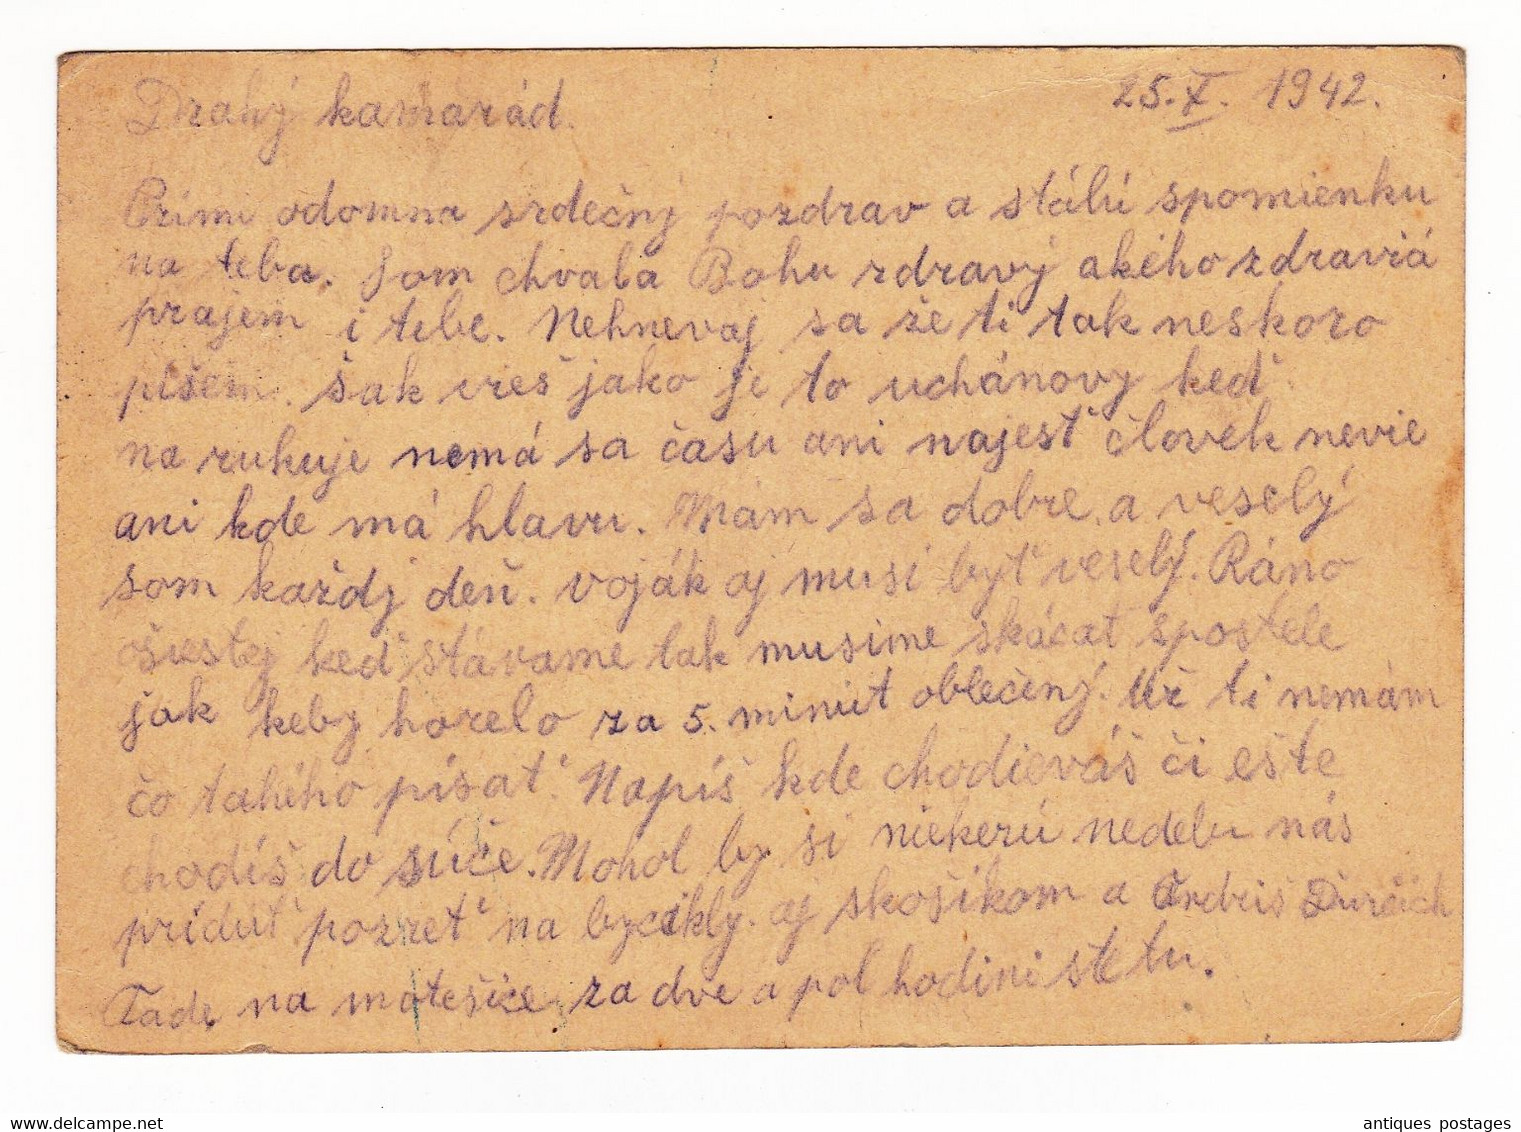 Drahý kamarád.
25. X. 1942.
Primi odomna srdečný pozdrav a stálú spomienku
na teba. Som chvala Bohu zdravý akého zdraviá
prajem i tebe. Nehnevaj sa že ti tak neskoro
píšem. Šak vreš jako je to uchánovy keď
na rukuje nemá sa času ani najesť človek nevie
ani kde má hlavu. Mám sa dobre, a veselý
som každj deň. voják aj musi byť veselý. Ráno
ošiestej keď stávame tak musime skácat spostele
jak keby horelo za 5. minút oblečený. Už ti nemám
čo takého písať. Napíš kde chodieváš či ešte
chodíš do súče. Mohol by si niekerú nedelu nás
príduť pozreť na bycikly. aj skošikom a
Tade na matešice za dve a pol hodini stetu.
antiques postages
www.delcampe.net